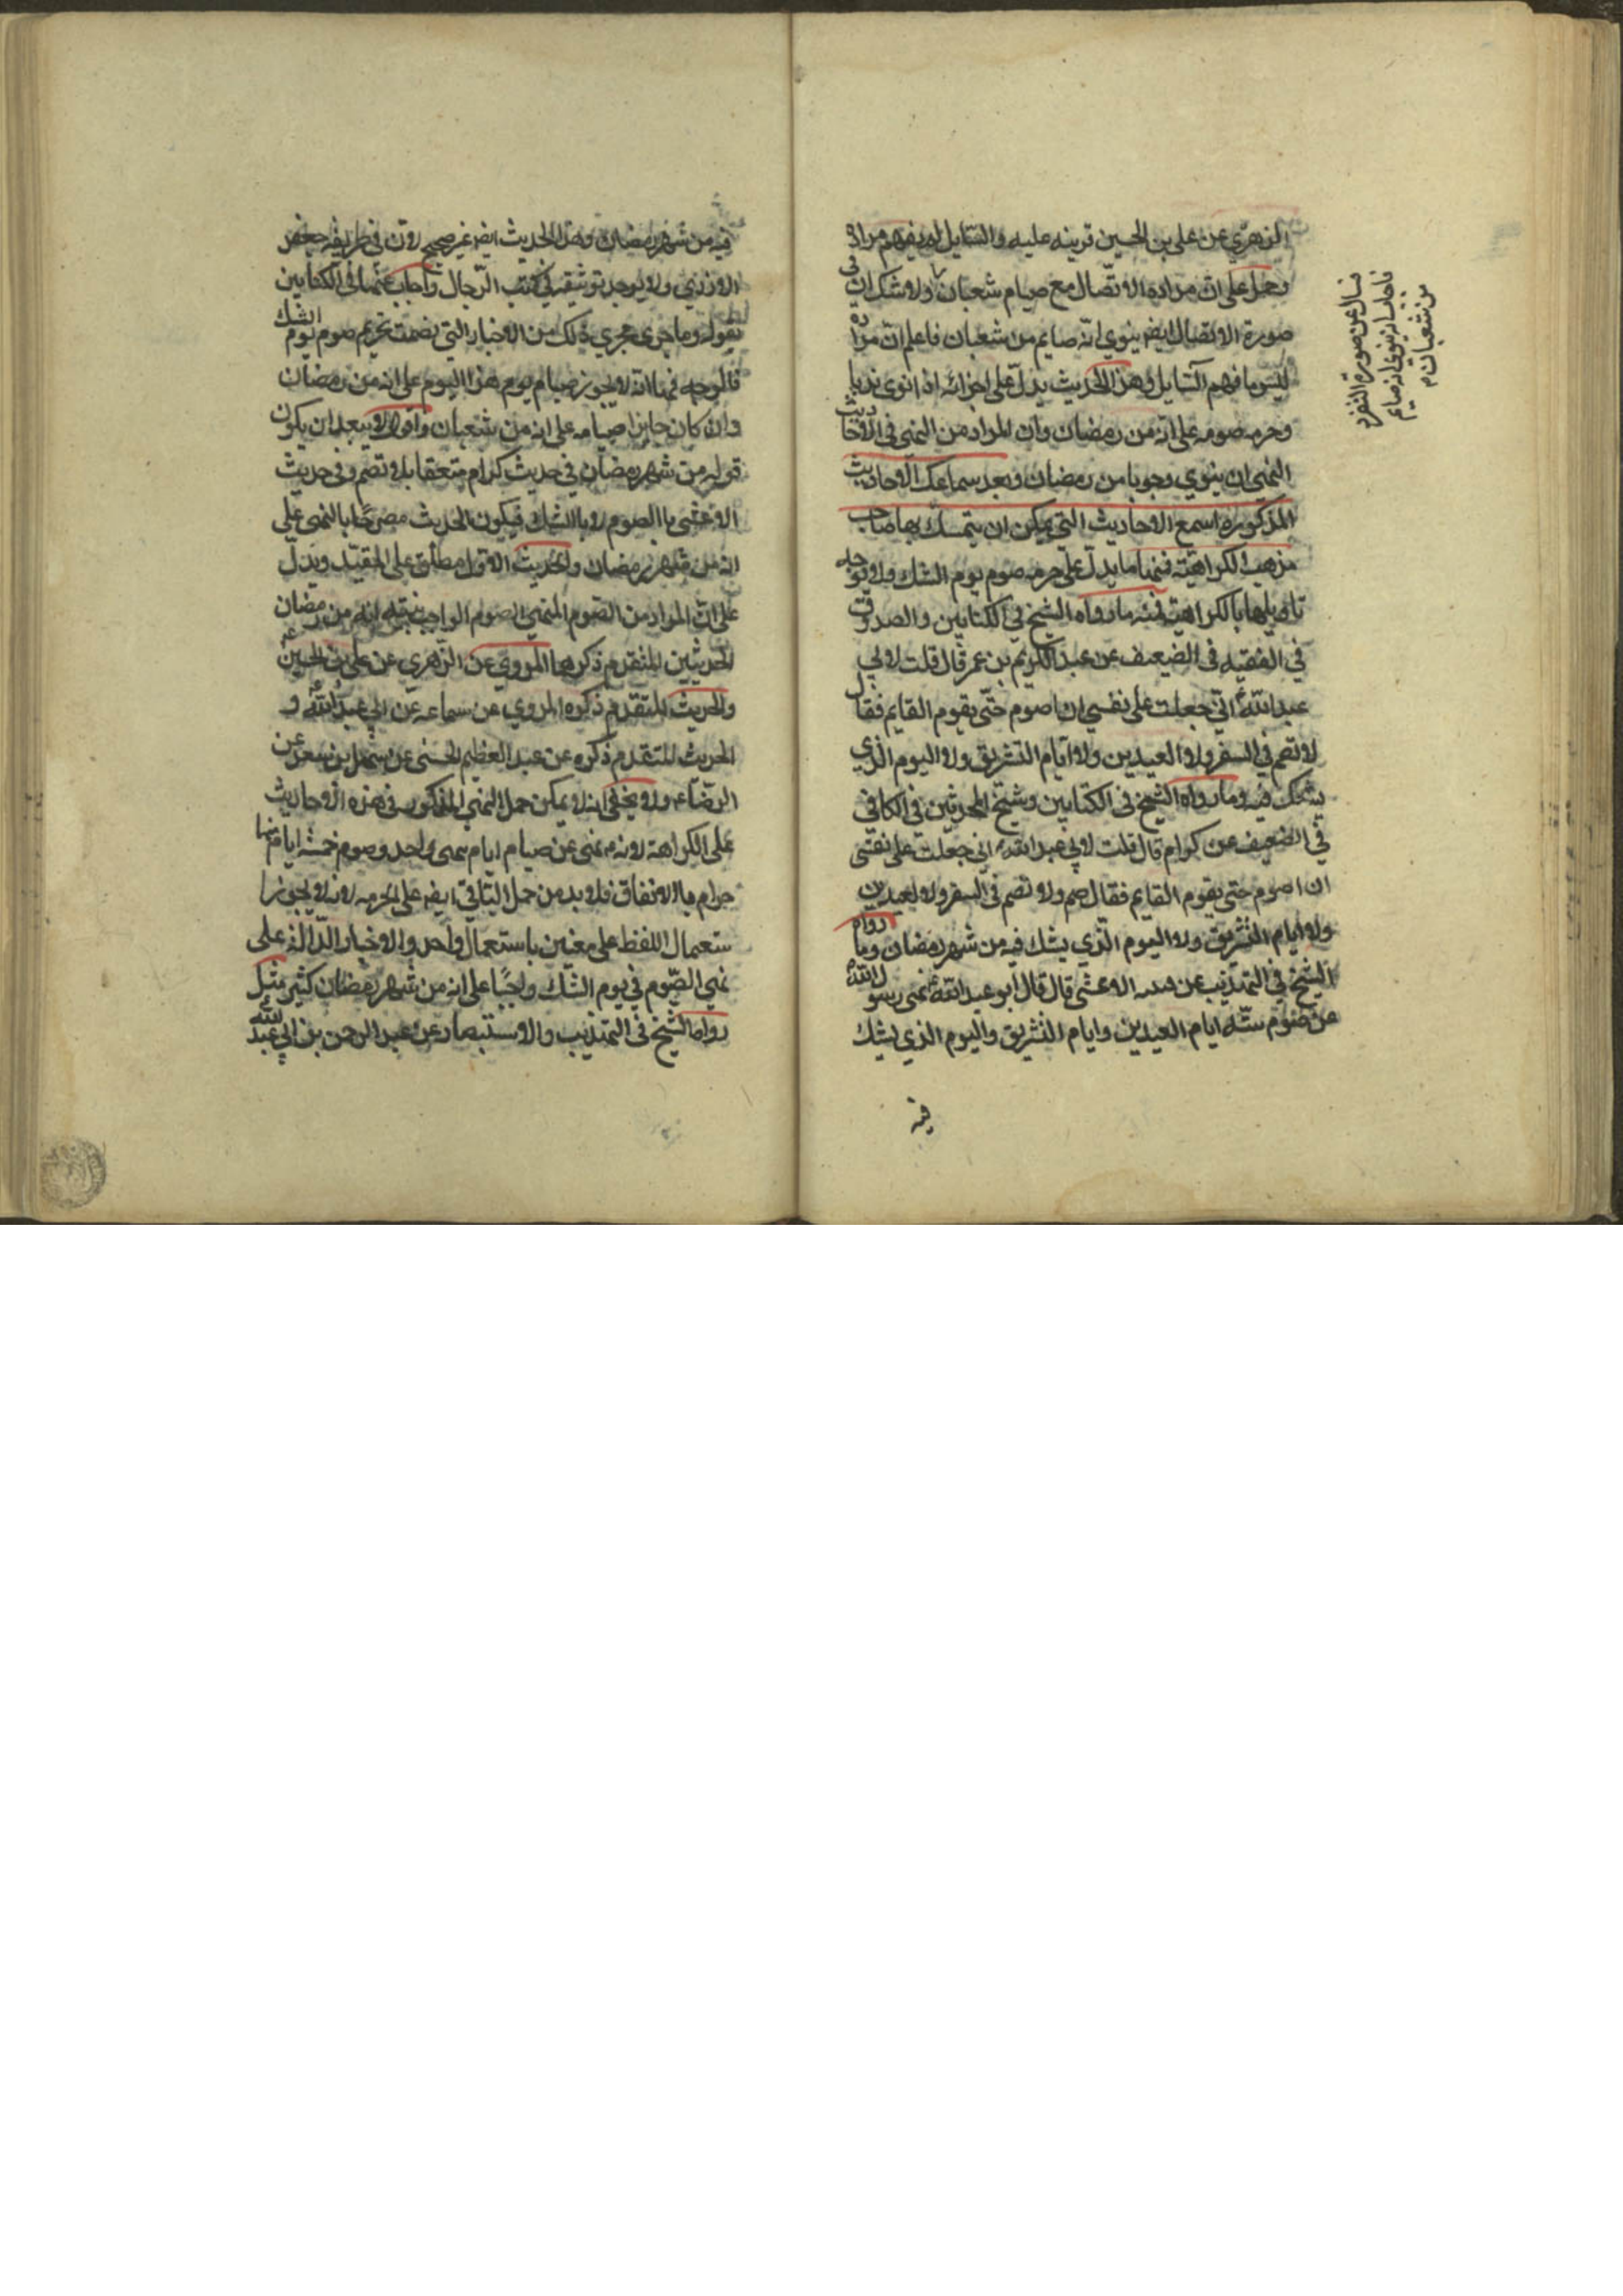 الزهري عن علي بن الحسين قرينه عليه والسايل لم يفهم مراده
وحمل على ان مراده الاتصال مع صيام شعبان ولا شك ان في
صورة الاتصال ايضا ينوي انه صايم من شعبان فاعلم ان مراده
ليس ما فهم السايل وهذا الحديث يدل على اجزائه اذا نوى ندبا
وحرمه صومه على انه من رمضان وان المراد من النهي في الاحاديث
النهي ان ينوي وجوبا من رمضان وبعد سماعك الاحاديث
المذكوره اسمع الاحاديث التي يمكن ان يتمسك بها صاحب
مذهب الكراهية فمنها ما يدل على حرمه صوم يوم الشك ولا توجله
تاويلها بالكراهية فمنه ما رواه الشيخ في الكتابين والصدوق
في الفقيه في الضعيف عن عبد الكريم بن عمر قال قلت لابي
عبد الله ع اني جعلت على نفسي ان اصوم حتى يقوم القايم فقال
لا تصم في السفر ولا العيدين ولا ايام التشريق ولا اليوم الذي
يشك فيه وما رواه الشيخ في الكتابين وشيخ المحدثين في الكافي
في الضعيف عن كرام قال قلت لابي عبد الله ع اني جعلت على نفسي
ان اصوم حتى يقوم القايم فقال صم ولا تصم في السفر ولا العيدين
ولا ايام التشريق ولا اليوم الذي يشك فيه من شهر رمضان وما رواه
الشيخ في التهذيب عن الاعشى قال قال ابو عبد الله ع نهى رسول الله
عن صوم سته ايام العيدين وايام التشريق واليوم الذي يشك
فيه
فسال عن صورة التفرد
فاجاب انه ينوي انه صايم
من شعبان م
فيه من شهر رمضان وهذا الحديث ايضا غير صحيح لان في طريقه جعفر
الازدي ولا يوجد توثيقه في كتب الرجال واجاب عنها في الكتابين
بقوله وما جرى مجري ذلك من الاخبار التي تضمنت تحريم صوم يوم الشك
فالوجه فيها انه لا يجوز صيام يوم هذا اليوم على انه من رمضان
وان كان جايزا صيامه على انه من شعبان واقول لا يبعد ان يكون
قوله من شهر رمضان في حديث كرام متعلقا بلا تصم وفي حديث
الاعشى بالصوم لا بالشك فيكون الحديث مصرحا بالنهي على
انه من شهر رمضان والحديث الاول مطلق على المقيد ويدل
على ان المراد من الصوم المنهي الصوم الواجب بنيته انه من رمضان
الحديثين المتقدم ذكرهما المروي عن الزهري عن علي بن الحسين ع
والحديث المتقدم ذكره المروي عن سماعه عن ابي عبد الله ع و
الحديث المتقدم ذكره عن عبد العظيم الحسني عن سهل بن سعد عن
الرضا ع ولا يخفى انه لا يمكن حمل النهي المذكور في هذه الاحاديث
على الكراهة لانه نهى عن صيام ايام سمى واحد وصوم خمسه ايام منها
حرام بالاتفاق فلا بد من حمل الباقي ايضا على الحرمه لانه لا يجوز ا
ستعمال اللفظ على معنين باستعمال واحد والاخبار الدالة على
نهي الصوم في يوم الشك واجبا على انه من شهر رمضان كثير مثل
رواها الشيخ في التهذيب والاستبصار عن عبد الرحمن بن ابي عبد الله